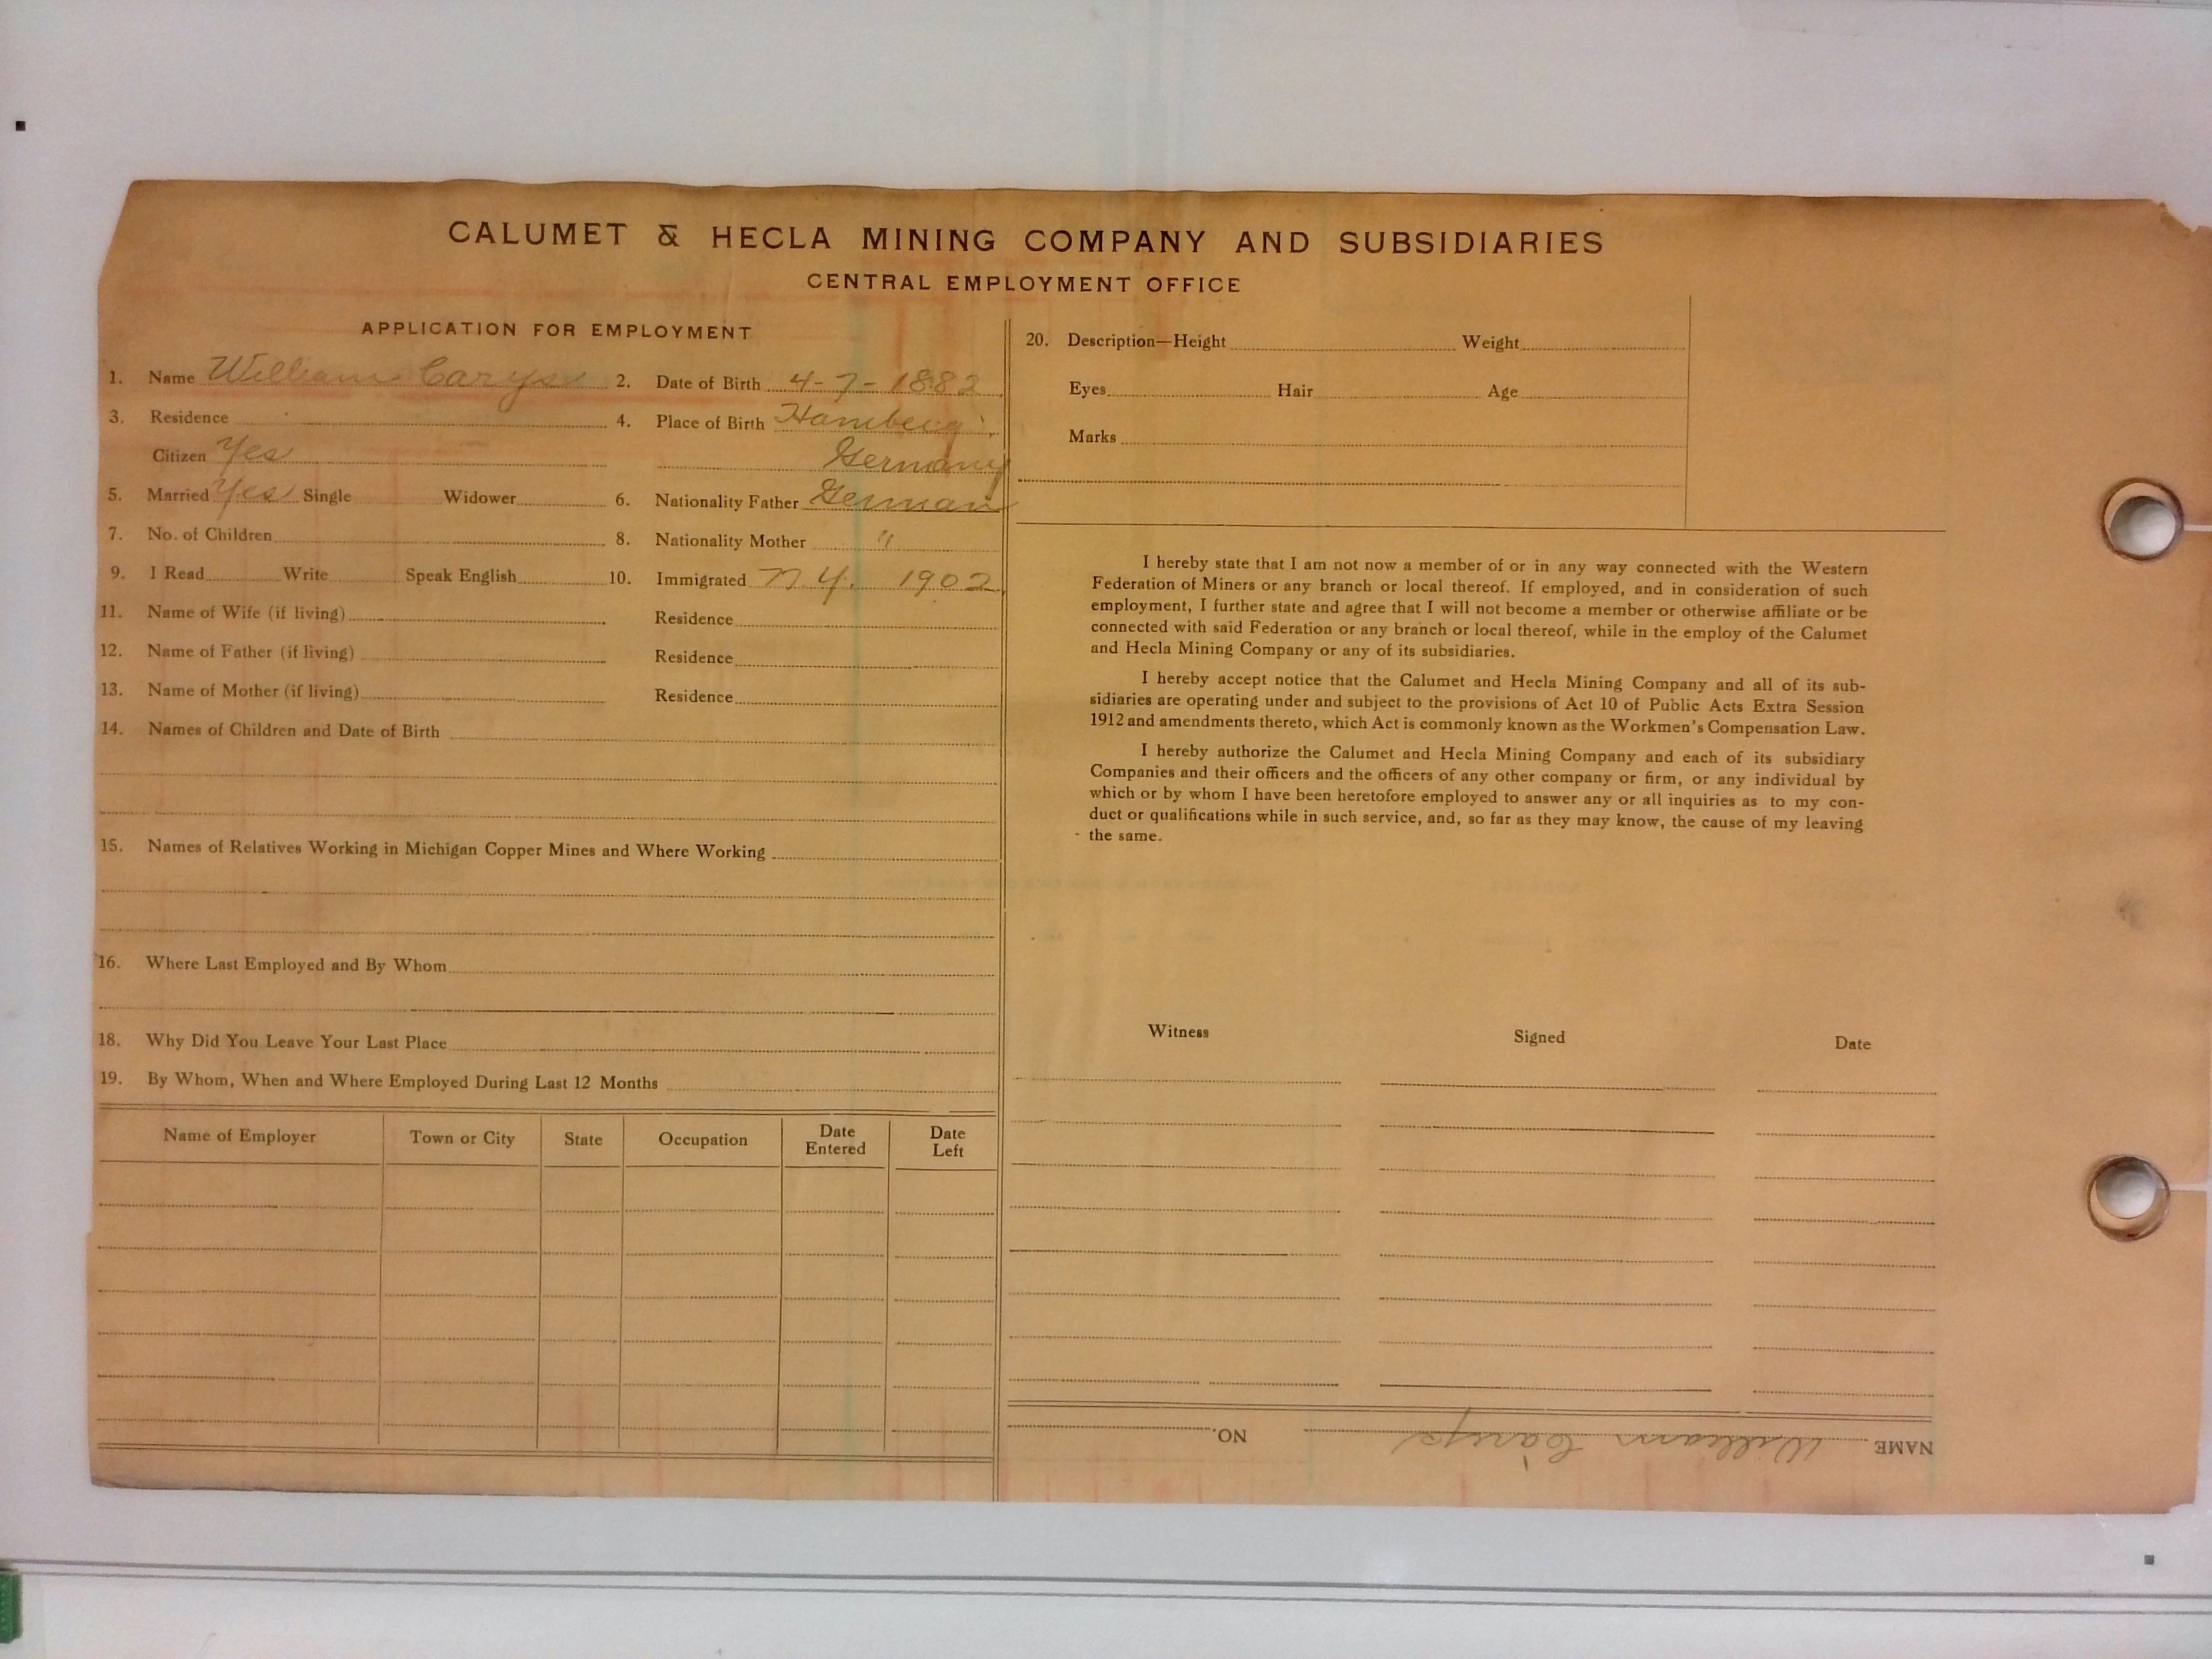 CALUMET & HECLA MINING COMPANY AND SUBSIDIARIES
CENTRAL EMPLOYMENT OFFICE
APPLICATION FOR EMPLOYMENT
1. Name William 2. Date of Birth 4-7-1882
3. Residence 4. Place of Birth Hamberg
Citizen Yes Germany
5. Married Yes Single Widower 6. Nationality Father German
7. No. of Children 8. Nationality Mother "
9. I Read Write Speak English 10. Immigrated N Y. 1902
11. Name of Wife (if living) Residence
12. Name of Father (if living) Residence
13. Name of Mother (if living) Residence
14. Names of Children and Date of Birth
15. Names of Relatives Working in Michigan Copper Mines and Where Working
16. Where Last Employed and By Whom
18. Why Did You Leave Your Last Place
19. By Whom, When and Where Employed During Last 12 Months
Name of Employer Town or City State Occupation Date Entered Date Left
20. Description—Height Weight
Eyes Hair Age
Marks
I hereby state that I am not now a member of or in any way connected with the Western
Federation of Miners or any branch or local thereof. If employed, and in consideration of such
employment, I further state and agree that I will not become a member or otherwise affiliate or be
connected with said Federation or any branch or local thereof, while in the employ of the Calumet
and Hecla Mining Company or any of its subsidiaries.
I hereby accept notice that the Calumet and Hecla Mining Company and all of its sub-
sidiaries are operating under and subject to the provisions of Act 10 of Public Acts Extra Session
1912 and amendments thereto, which Act is commonly known as the Workmen's Compensation Law.
I hereby authorize the Calumet and Hecla Mining Company and each of its subsidiary
Companies and their officers and the officers of any other company or firm, or any individual by
which or by whom I have been heretofore employed to answer any or all inquiries as to my con-
duct or qualifications while in such service, and, so far as they may know, the cause of my leaving
the same.
Witness Signed Date
NAME William NO.